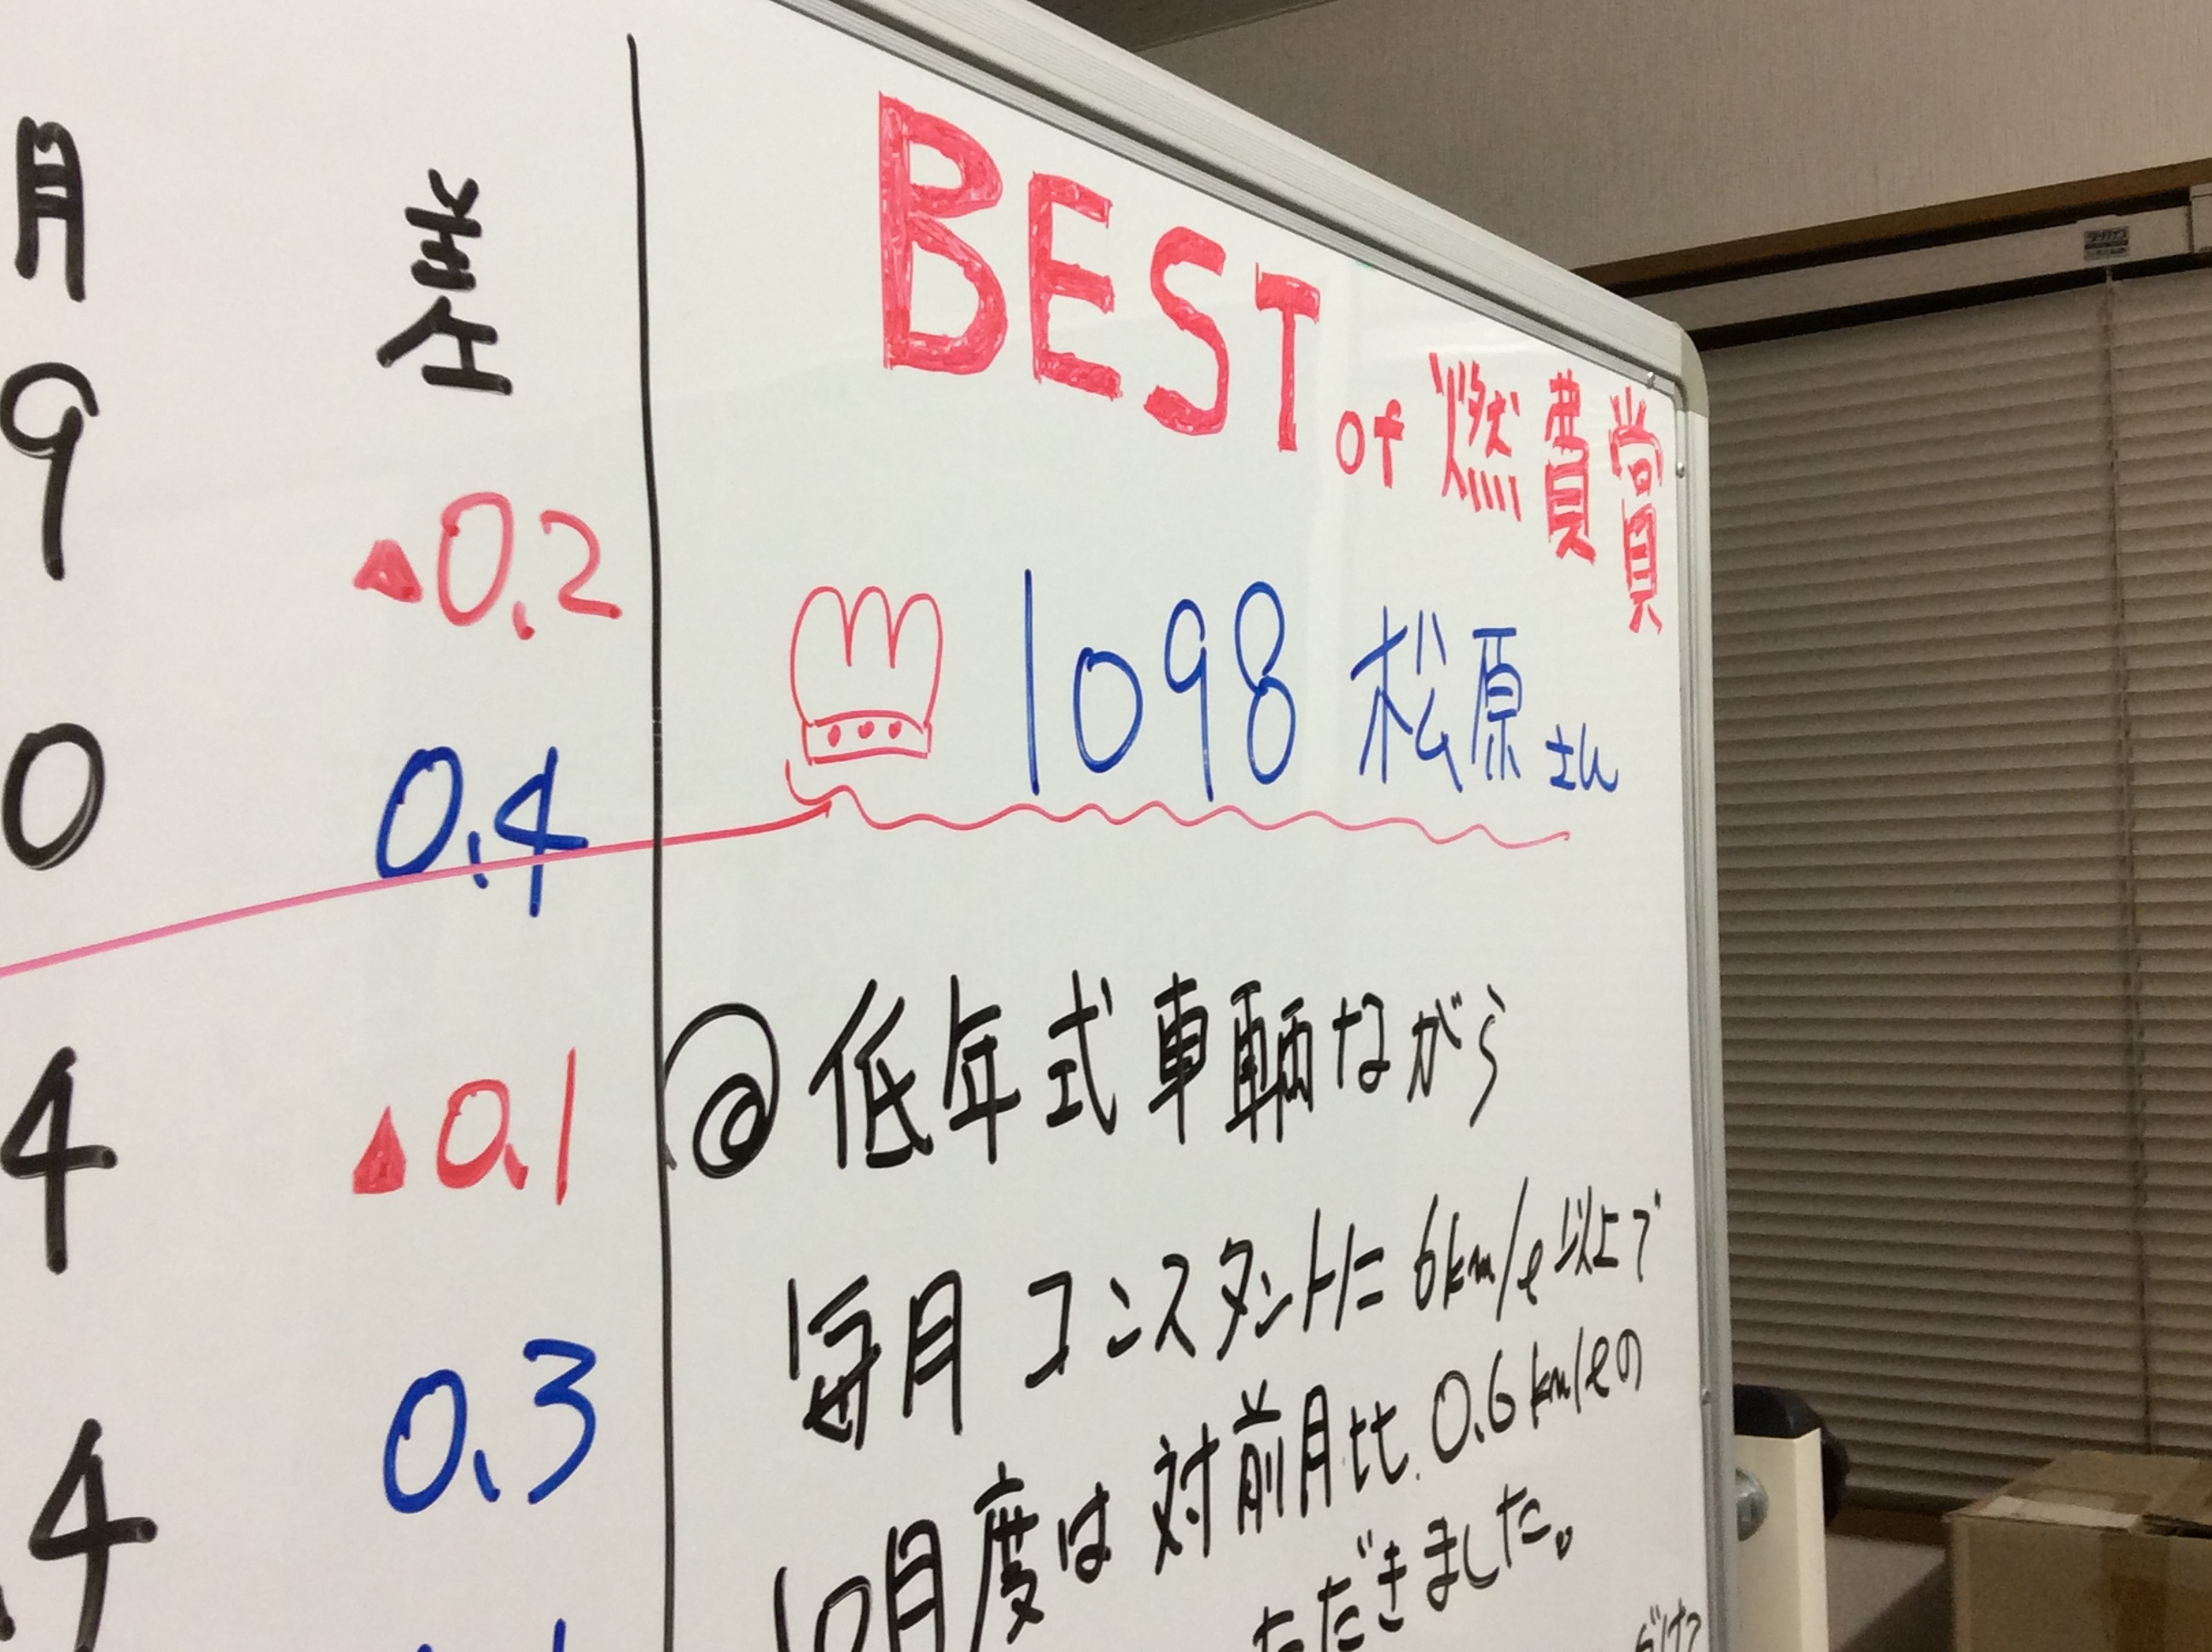 月 差
9 ▲0.2
0 0.4
4 ▲0.1
.4 0.3
BEST of 燃費賞
1098 松原さん
◎低年式車輌ながら
毎月コンスタントに6km/ℓ以上で
10月度は対前月比.0.6km/ℓの
ただきました。